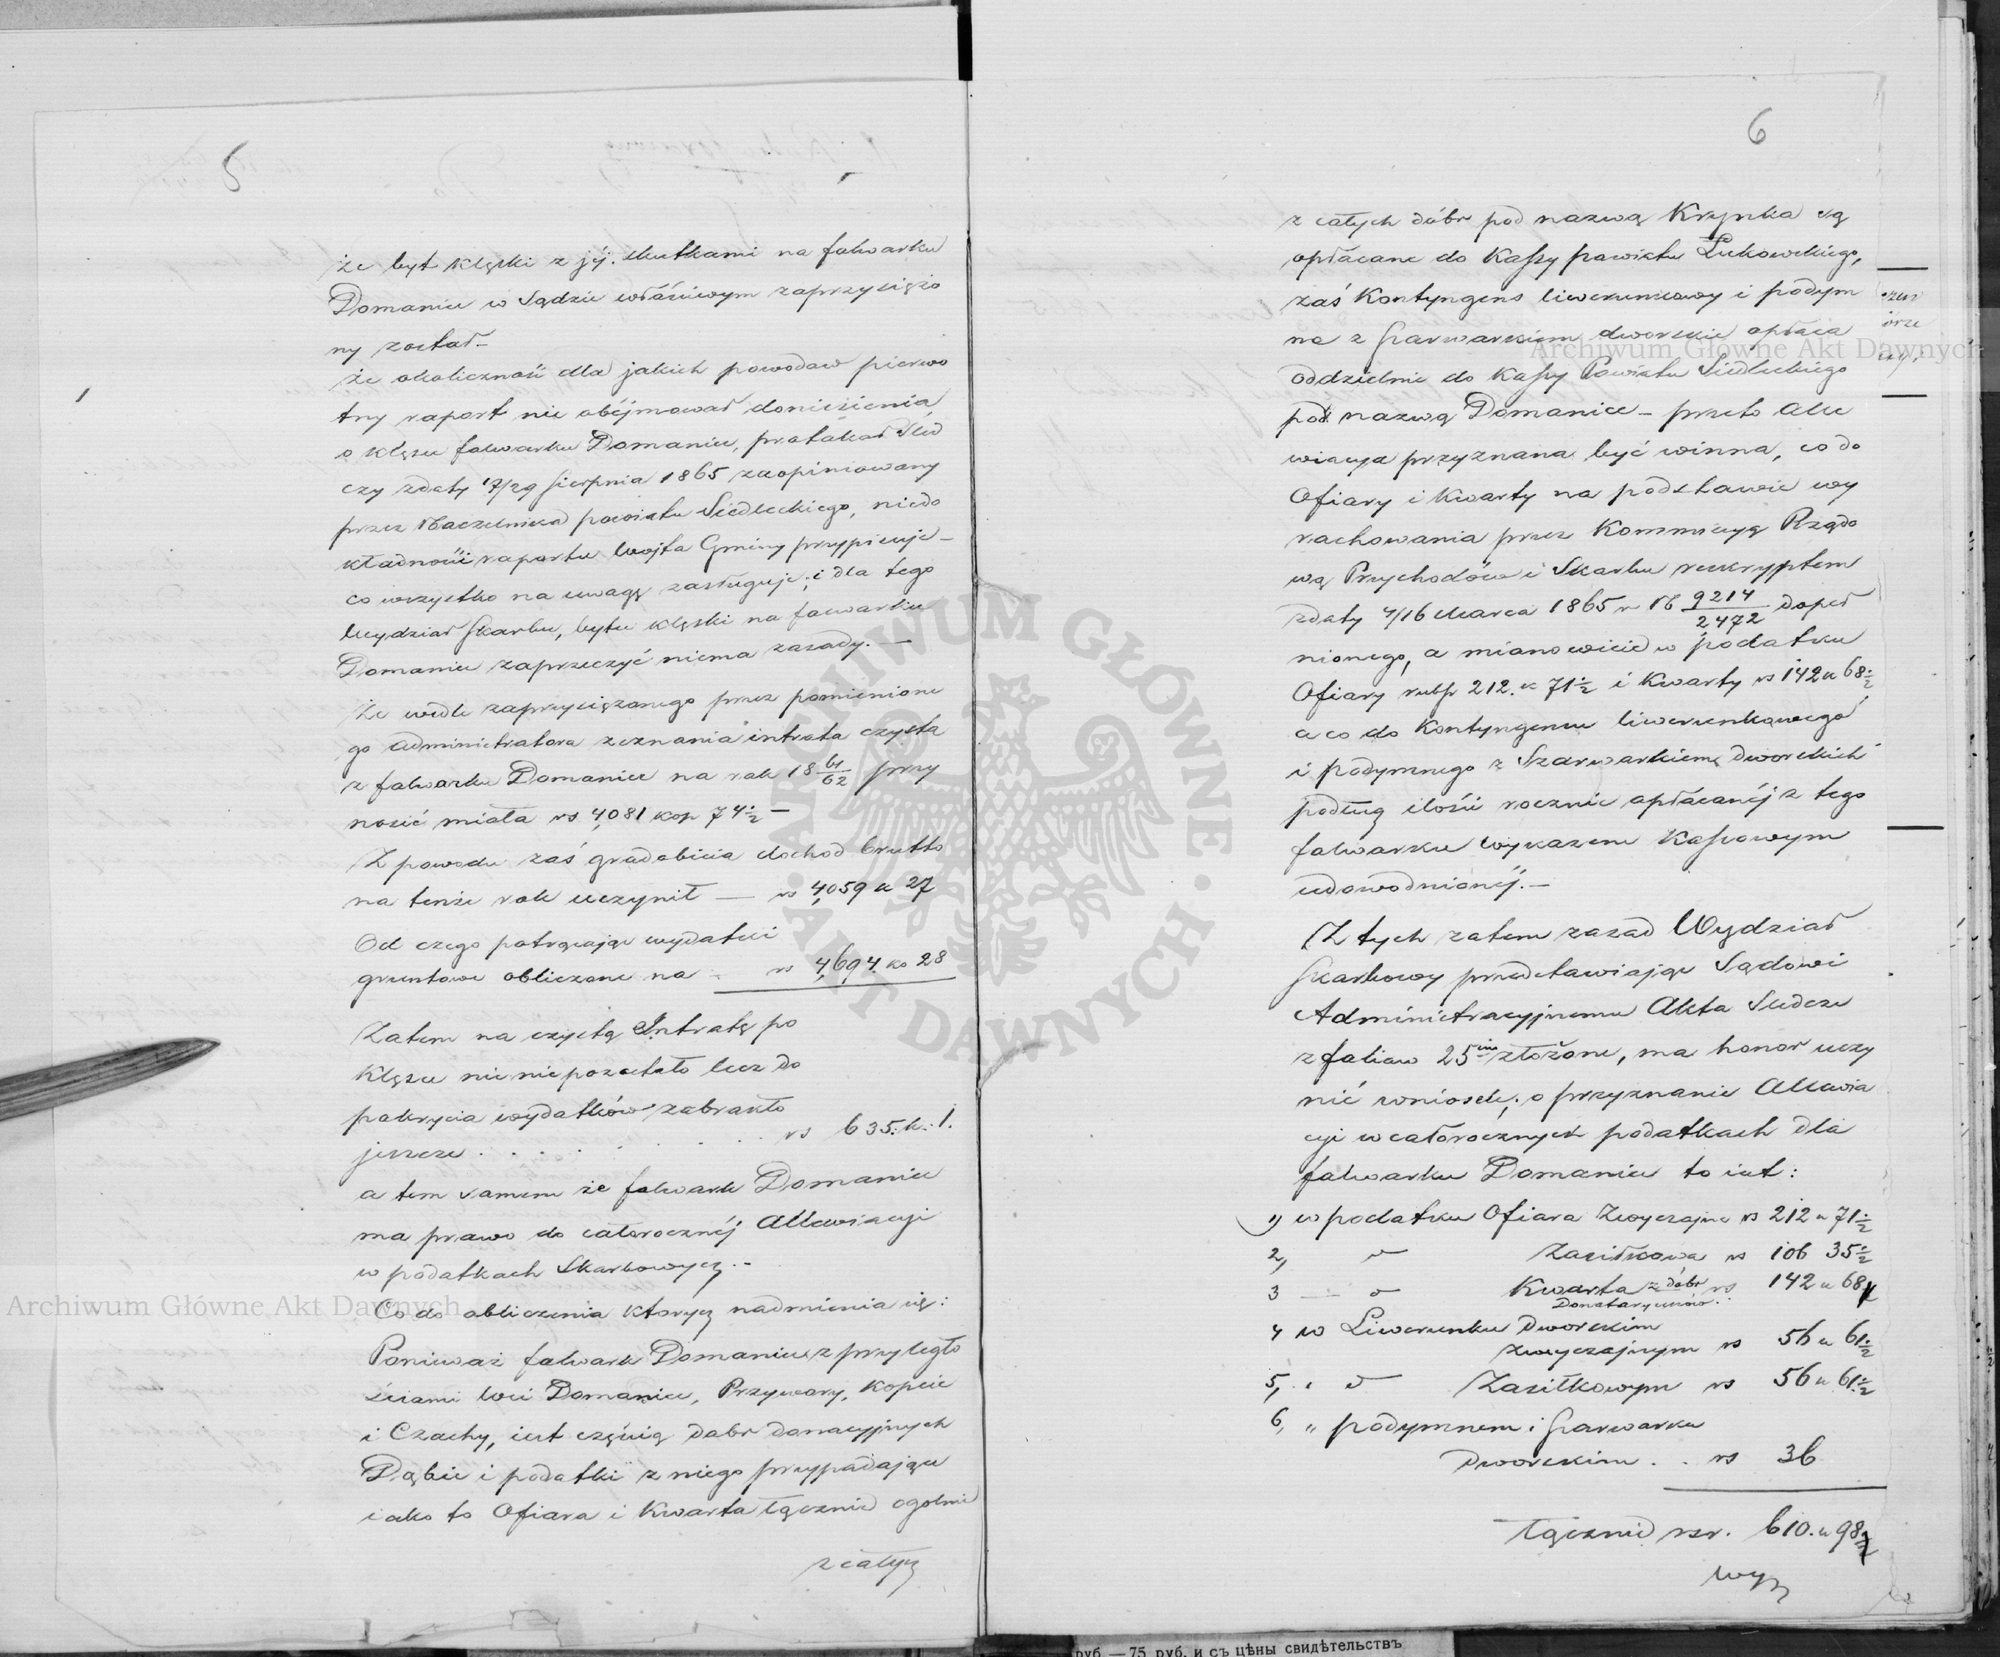 5
że byt klęski z jéj skutkami na folwarku
Domanice w Sądzie właściwym zaprzysiężo
ny został_
że okoliczność dla jakich powodow pierwo
tny raport nie obéjmował doniesienia
o klęsce folwarku Domanice, protokoł Śled
czy zdaty 17/29 Sierpnia 1865 zaopiniowany
przez Naczelnika powiatu Siedleckiego, niedo
kładności raportu Wojta Gminy przypisuje_
co wszystko na uwagę zasługuje; i dla tego
Wydział Skarbu, bytu klęski na folwarku
Domanice zaprzeczyć niema zasady._
że wedle zaprzysiężonego przez pomienione
go administratora zeznania intrata czysta
z folwarku Domanice na rok 18 61/62 przy
nosić miała rs 4,081 kop 74 1/2 —
Z powodu zaś gradobicia dochod brutto
na tenże rok uczynił — rs 4,059 k 27
Od czego potrącając wydatki
gruntowe obliczone na - rs 4,694 ko 28
Zatem na czystą Intratę po
klęsce nic nie pozostało lecz do
pokrycia wydatków zabrakło
jeszcze . . . . . . . . rs 635. k. 1.
a tem samem że folwark Domanice
ma prawo do całorocznéj Allewiacyi
w podatkach Skarbowych.-
Co do obliczenia ktorych nadmienia się:
Ponieważ folwark Domanice z przyległo
ściami wsi Domanice, Przywory, Kopcie
i Czachy, iest częścią dobr donacyjnych
Dąbie i podatki z niego przypadające
iako to Ofiara i Kwarta łącznie ogolnie
z całych
6
z całych dóbr pod nazwą Krynka są
opłacane do Kassy powiatu Łukowskiego,
zaś Kontyngens liwerunkowy i podym
ne z Szarwarkiem dworskie opłaca
oddzielnie do Kassy Powiatu Siedleckiego
pod nazwą Domanice — przeto Alle
wiacya przyznana być winna, co do
Ofiary i Kwarty na podstawie wy
rachowania przez Kommissyą Rządo
wą Przychodów i Skarbu reskryptem
zdaty 4/16 Marca 1865 r N 9214/2472 dopeł
nionego, a mianowicie w podatku
Ofiary rubsr 212. k 71 1/2 i Kwarty rs 142 k 68 1/2
a co do Kontyngensu liwerunkowego
i podymnego z Szarwarkiem Dworskich
podług ilości rocznie opłacanéj z tego
folwarku wykazem Kassowym
udowodnionéj._
Z tych zatem zasad Wydział
Skarbowy przedstawiając Sądowi
Administracyjnemu Akta Śledcze
z foliow 25ciu złożone, ma honor uczy
nić wniosek; o przyznanie Allewia
cyi w całorocznych podatkach dla
folwarku Domanice to iest:
1) w podatku Ofiara Zwyczajna rs 212 k 71 1/2
2, " Zasiłkowa rs 106 35 1/2
3 — " Kwarta z dóbr rs 142 k 68
Donataryuszow
4 w Liwerunku Dworskim
zwyczajnym rs 56 k 61 1/2
5, " " Zasiłkowym rs 56 k 61 1/2
6, " podymnem i Szarwarku
Dworskim . . rs 36
łącznie rsr. 610. k 98
wyz
Archiwum Główne Akt Dawnych
Archiwum Główne Akt Dawnych
ARCHIWUM GŁÓWNE · AKT DAWNYCH ·
руб. — 75 руб. и съ цѣны свидѣтельствъ